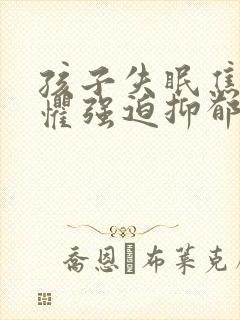 孩子失眠焦
惧强迫抑郁
乔恩 布莱克